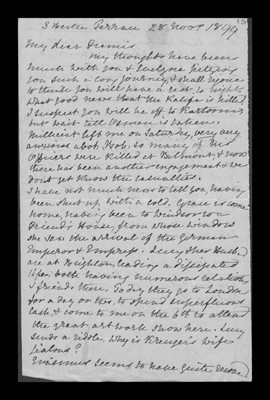 3 Hertie Terrace 28 Nov 1899
My dear Dennis
My thoughts have been
much with you & Evelyne pitying
you such a long journey, I shall rejoice
to think you will have a rest to night
What good news that the Kalifa is killed
I suspect you will be off to Khartoum
but wait till Osman is taken.
Millicent left me on Saturday, very very
anxious abt. Rob. so many of his
Officers were killed at Belmont & now
there has been another engagement & we
dont yet know the casualties.
I have not much news to tell you, having
been shut up with a cold. Grace is come
home, having been to Windsor to a
Friend's House, from whose windows
she saw the arrival of the German
Emperor & Empress. Lucy & her Husbd.
are at Brighton, leading a dissipated
life, both having numerous relatives
& friends there. To day they go to London
for a day or two, to spend superfluous
cash, & come to me on the 6th to attend
the great art work show here. Lucy
sends a riddle. Why is Kruger's wife
jealous?
Erasmus seems to have quite